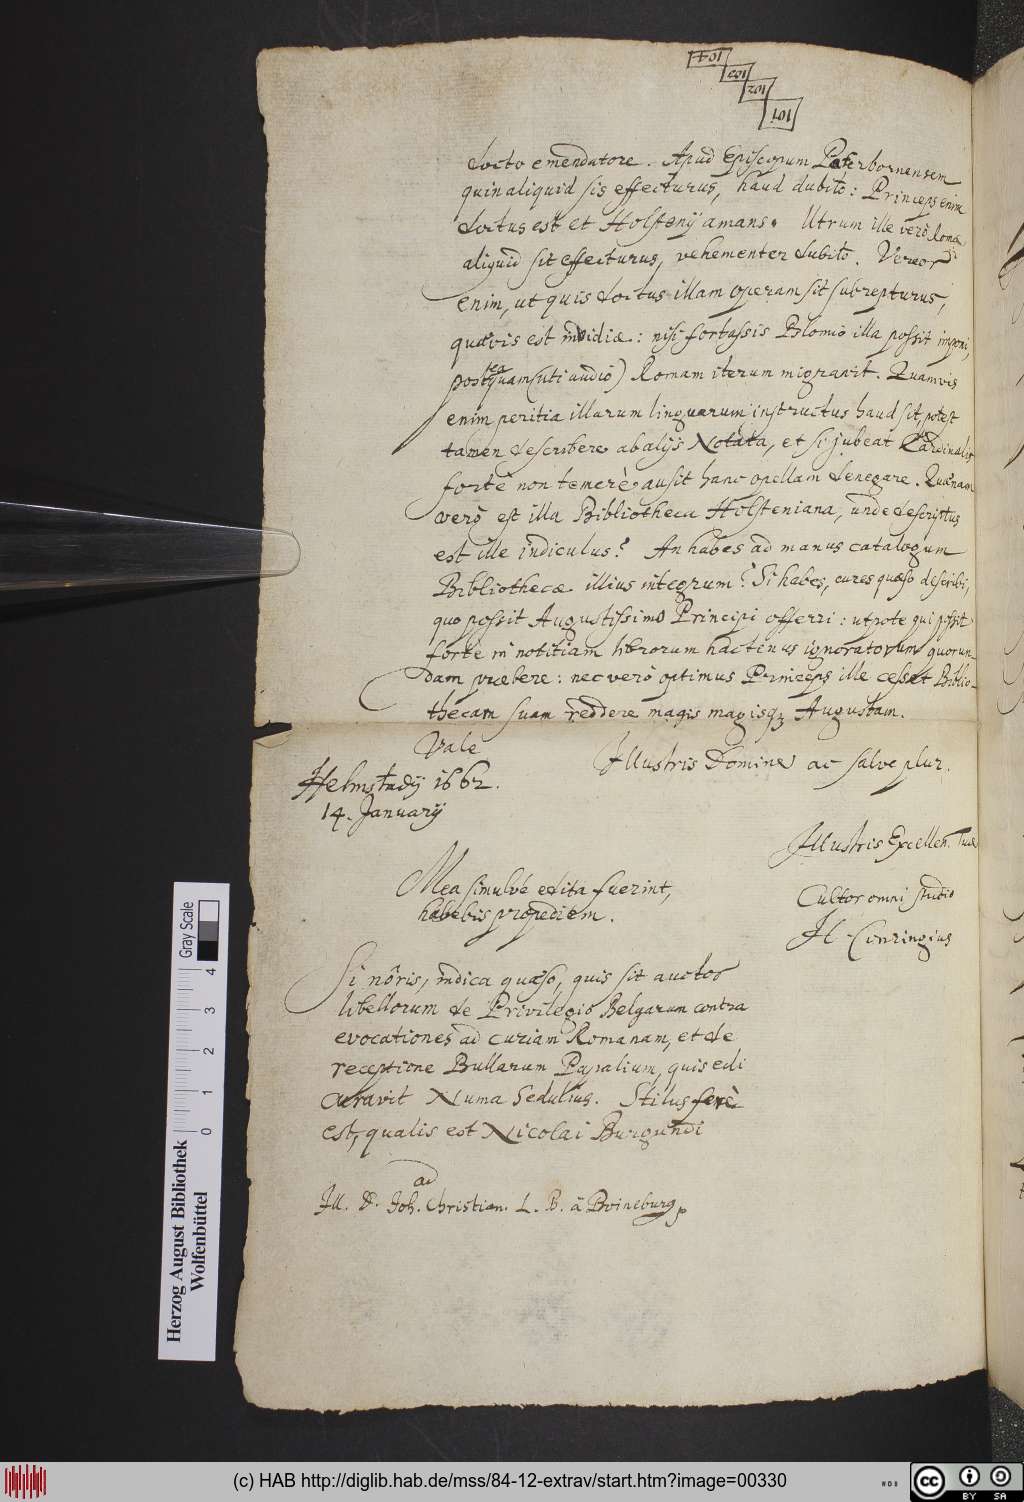 104
103
102
101
docto emendatore. Apud Episcopum Paterbornensem
quin aliquid sis effecturus, haud dubito: Princeps enim
doctus est et Holstenij amans. Utrum ille verò Romae
aliquid sit effecturus, vehementer dubito. Vereor
enim, ut quis doctus illam operam sit subrepturus,
quævis est invidiæ: nisi fortassis Blomio illa possit imponi,
postea quam (uti audio) Romam iterum migravit. Quamvis
enim peritia illarum linguarum instructus haud sit, potest
tamen describere ab alijs Notata, et si jubeat Cardinalis
fortè non temerè ausit hanc opellam denegare. Quænam
verò est illa Bibliotheca Holsteniana, unde descriptus
est ille indiculus? An habes ad manus catalogum
Bibliothecæ illius integrum? Si habes, cures quæso describi,
quo possit Augustissimo Principi offerri: utpote qui possit
fortè in notitiam librorum hactenus ignoratorum quorun-
dam præbere: nec verò optimus Princeps ille cesset Biblio-
thecam suam reddere magis magisq; Augustam.
Vale Illustris Domine ac salve plur.
Helmstadij 1662.
14. Januarij
Illustris Excellen. Tuæ
Cultor omni studio
H. Conringius
Mea simulvé edita fuerint,
habebis propediem.
Si nôris, indica quæso, quis sit auctor
libellorum de Privilegio Belgarum contra
evocationes ad curiam Romanam, et de
receptione Bullarum Papalium, quis edi
curavit Numa Sedulius. Stilus ferè
est, qualis est Nicolai Burgundi
ad
Ill. D. Joh. Christian. L. B. à Boineburg
Herzog August Bibliothek
Wolfenbüttel
0 1 2 3 4
Gray Scale
(c) HAB http://diglib.hab.de/mss/84-12-extrav/start.htm?image=00330
WDB
cc BY SA